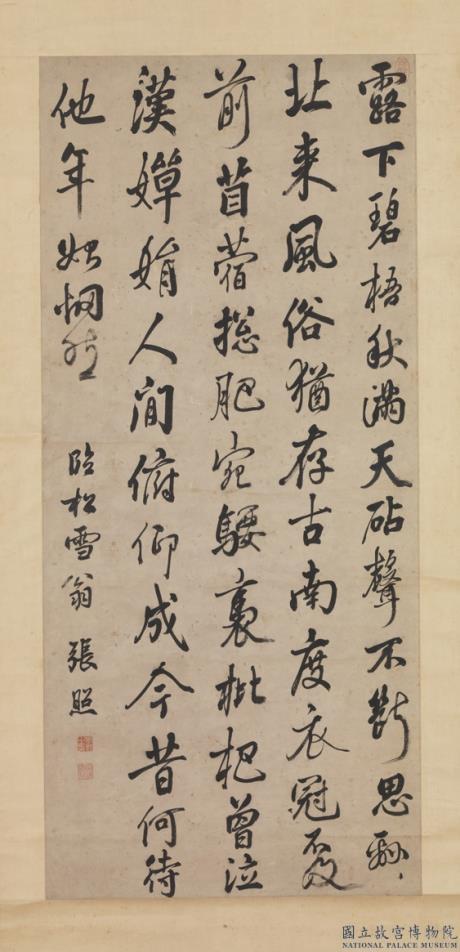 露下碧梧秋滿天砧聲不斷思緜、
北来風俗猶存古南度衣冠不後
前苜蓿揔肥宛騕褭枇杷曾泣
漢嬋娟人間俯仰成今昔何待
他年始惘然
臨松雪翁 張照
國立故宮博物院
NATIONAL PALACE MUSEUM